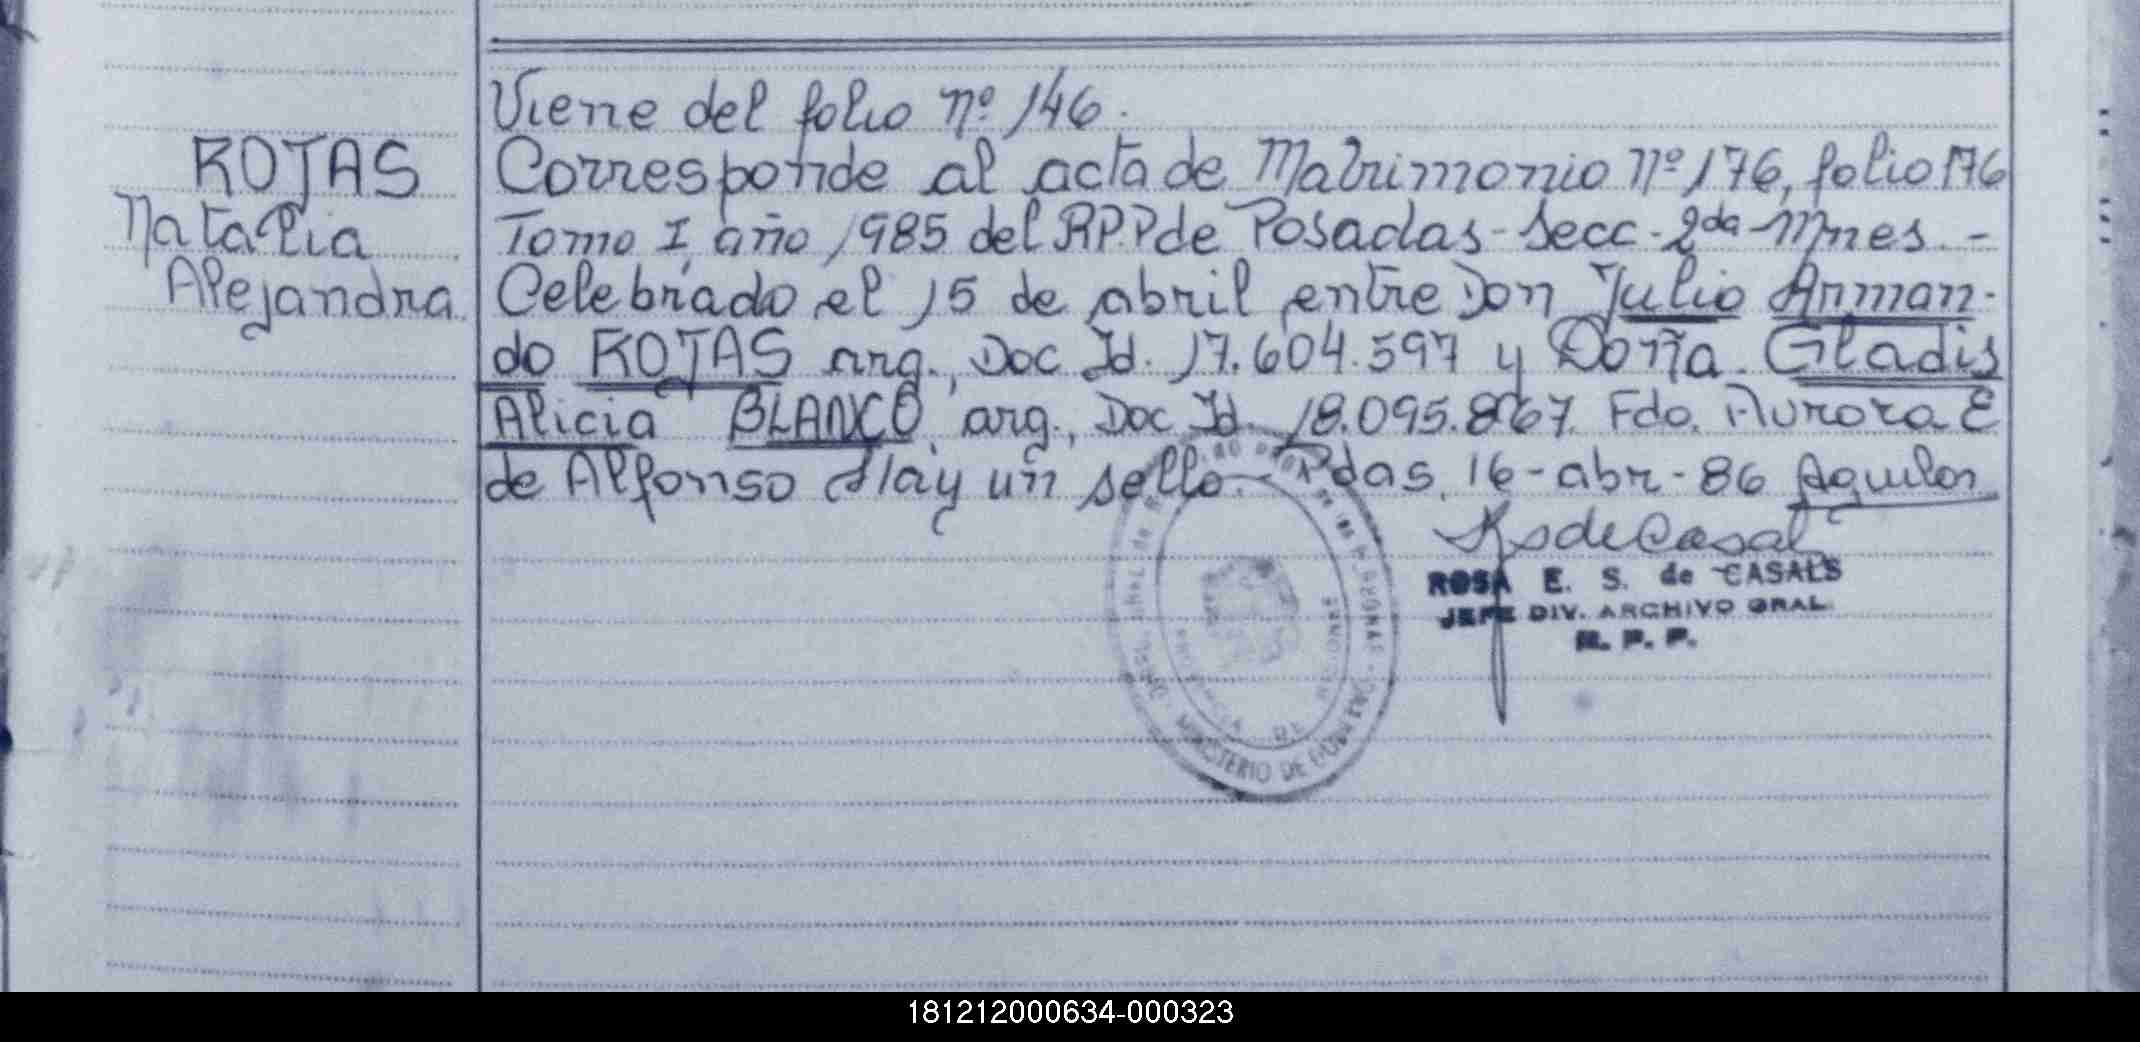 Viene del folio nº 146.
ROJAS
Natalia
Alejandra.
Corresponde al acta de Matrimonio nº 176, folio 176
Tomo I, año 1985 del R.P.P de Posadas - Secc - 2da - Mnes. -
Celebrado el 15 de abril entre Don Julio Arman-
do ROJAS arg., Doc Id. 17.604.597 y Doña Gladis
Alicia BLANCO, arg., Doc Id. 18.095.867. Fdo. Aurora E
de Alfonso Hay un sello. - Pdas, 16 - abr - 86 Aguilar
ROSA E. S. de CASALS
JEFE DIV. ARCHIVO GRAL.
R. P. P.
MINISTERIO DE
181212000634-000323